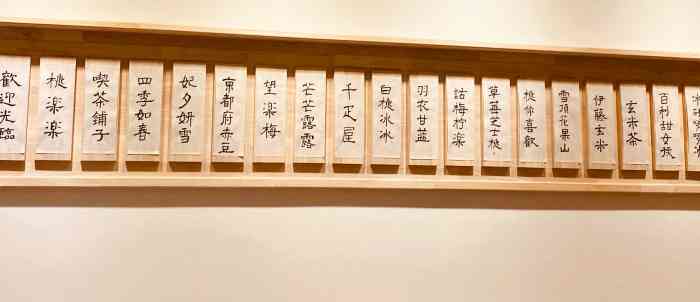 歡迎光臨
桃楽楽
喫茶鋪子
四季如春
妃夕妍雪
京都府赤豆
望楽梅
芒芒露露
千疋屋
白桃冰冰
羽衣甘藍
話梅柠楽
草苺芝士桃
桃你喜歡
雪頂花果山
伊藤玄米
玄米茶
百利甜女孩